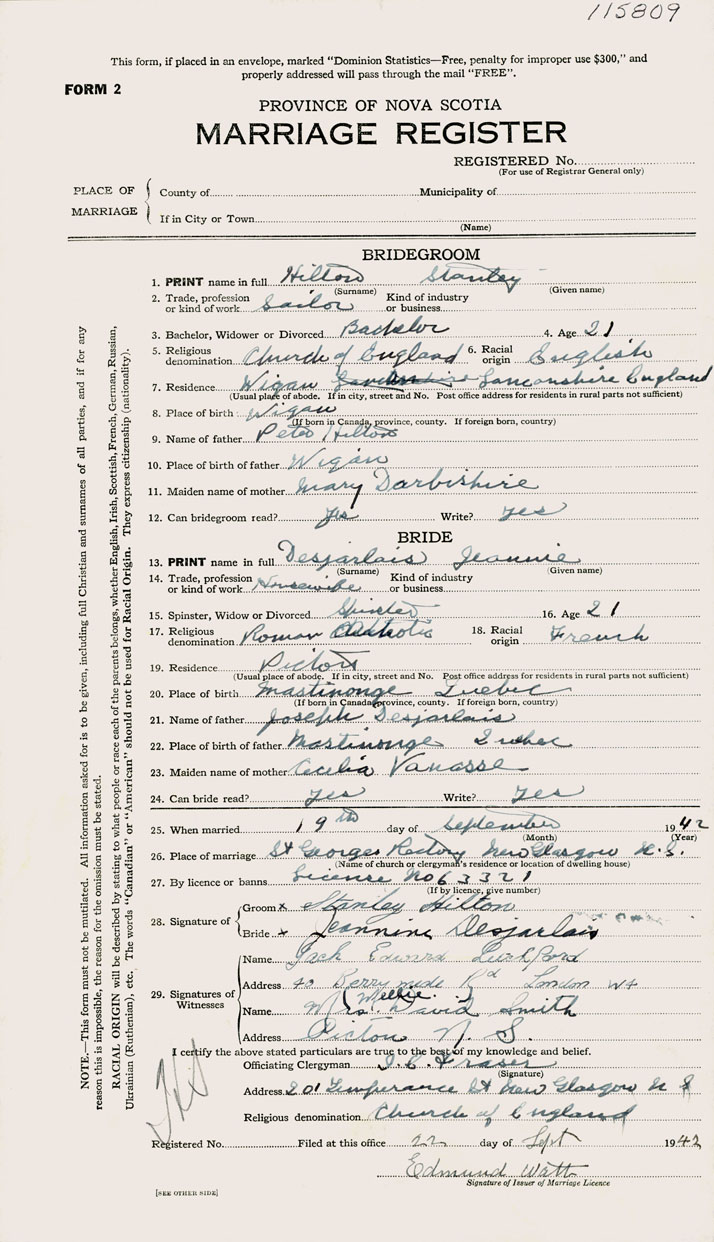 115809
This form, if placed in an envelope, marked "Dominion Statistics—Free, penalty for improper use $300," and
properly addressed will pass through the mail "FREE".
FORM 2
PROVINCE OF NOVA SCOTIA
MARRIAGE REGISTER
REGISTERED No.
(For use of Registrar General only)
PLACE OF MARRIAGE
County of Municipality of
If in City or Town
(Name)
BRIDEGROOM
1. PRINT name in full Hilton Stanley
(Surname) (Given name)
2. Trade, profession or kind of work Sailor Kind of industry or business
3. Bachelor, Widower or Divorced Bachelor 4. Age 21
5. Religious denomination Church of England 6. Racial origin English
7. Residence Wigan Lancanshire England
(Usual place of abode. If in city, street and No. Post office address for residents in rural parts not sufficient)
8. Place of birth Wigan
(If born in Canada, province, county. If foreign born, country)
9. Name of father Peter Hilton
10. Place of birth of father Wigan
11. Maiden name of mother Mary Darbishire
12. Can bridegroom read? yes Write? yes
BRIDE
13. PRINT name in full Desjarlais Jeannie
(Surname) (Given name)
14. Trade, profession or kind of work Housewife Kind of industry or business
15. Spinster, Widow or Divorced Spinster 16. Age 21
17. Religious denomination Roman Catholic 18. Racial origin French
19. Residence Pictou
(Usual place of abode. If in city, street and No. Post office address for residents in rural parts not sufficient)
20. Place of birth Mastinonge Quebec
(If born in Canada, province, county. If foreign born, country)
21. Name of father Joseph Desjarlais
22. Place of birth of father Mastinonge Quebec
23. Maiden name of mother Cecelia Vanasse
24. Can bride read? yes Write? yes
25. When married 19th day of September 1942
(Month) (Year)
26. Place of marriage St Georges Rectory New Glasgow N.S.
(Name of church or clergyman's residence or location of dwelling house)
27. By licence or banns License No 63321
(If by licence, give number)
28. Signature of
Groom x Stanley Hilton
Bride x Jeannine Desjarlais
29. Signatures of Witnesses
Name Jack Edward
Address 40 Rd London W4
(Millie)
Name Mrs. David Smith
Address Pictou N.S.
I certify the above stated particulars are true to the best of my knowledge and belief.
Officiating Clergyman Fraser
(Signature)
Address 201 Temperance St New Glasgow N S
Religious denomination Church of England
Registered No. Filed at this office 22 day of Sept 1942
Edmund Watt
Signature of Issuer of Marriage Licence
[SEE OTHER SIDE]
NOTE.—This form must not be mutilated. All information asked for is to be given, including full Christian and surnames of all parties, and if for any
reason this is impossible, the reason for the omission must be stated.
RACIAL ORIGIN will be described by stating to what people or race each of the parents belongs, whether English, Irish, Scottish, French, German, Russian,
Ukrainian (Ruthenian), etc. The words "Canadian" or "American" should not be used for Racial Origin. They express citizenship (nationality).